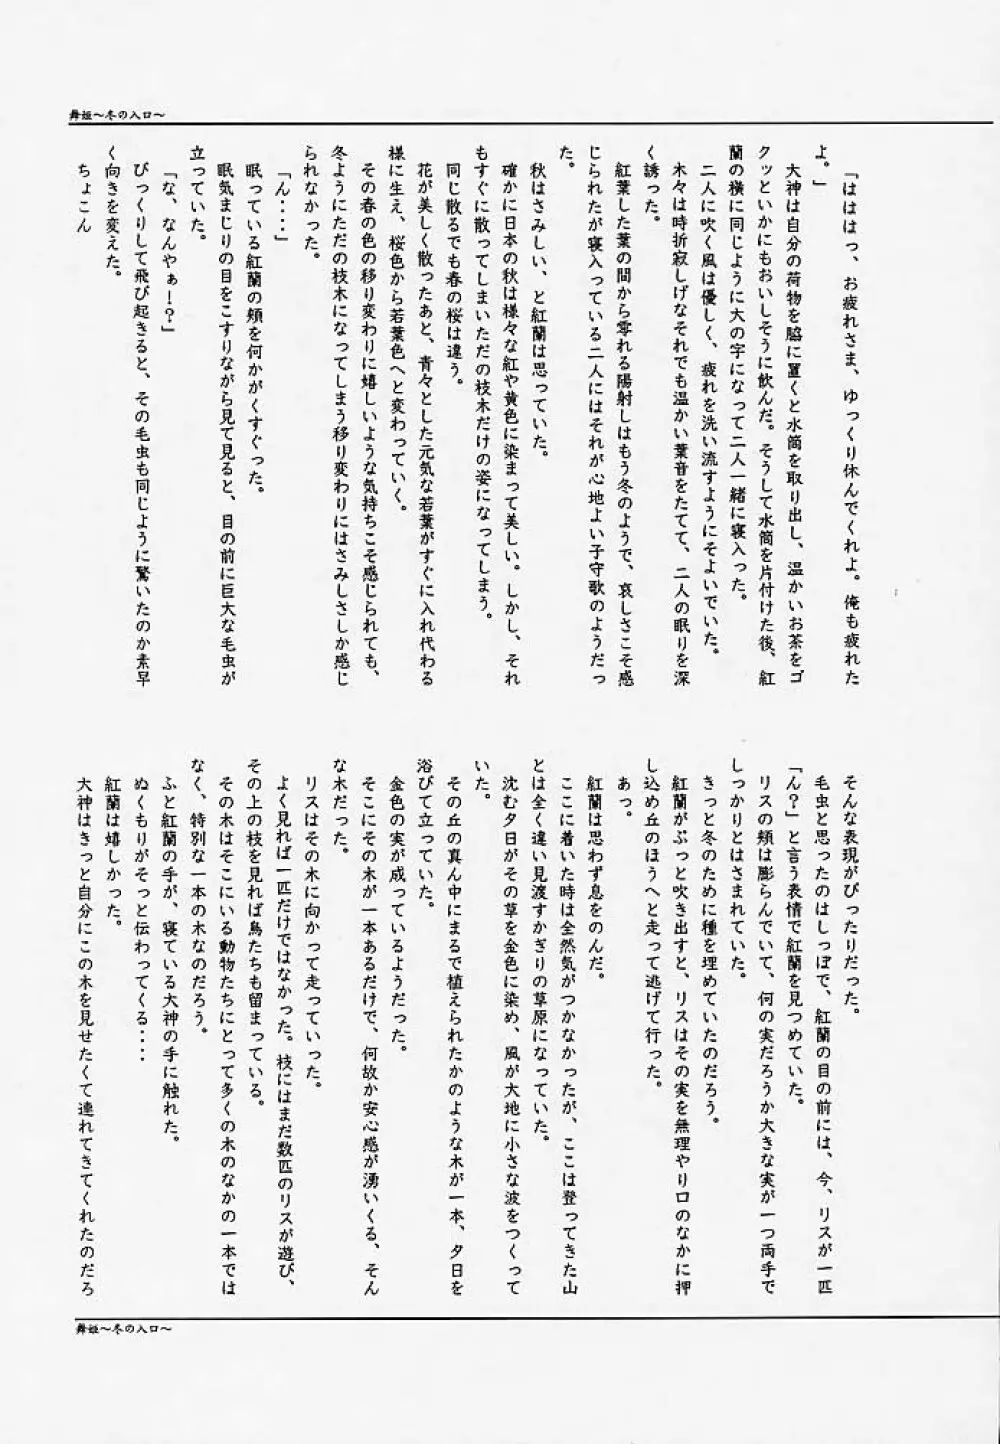 舞姫～冬の入口～
「はははっ、お疲れさま、ゆっくり休んでくれよ。俺も疲れた
よ。」
大神は自分の荷物を脇に置くと水筒を取り出し、温かいお茶をゴ
クッといかにもおいしそうに飲んだ。そうして水筒を片付けた後、紅
蘭の横に同じように大の字になって二人一緒に寝入った。
二人に吹く風は優しく、疲れを洗い流すようにそよいでいた。
木々は時折寂しげなそれでも温かい葉音をたてて、二人の眠りを深
く誘った。
紅葉した葉の間から零れる陽射しはもう冬のようで、哀しさこそ感
じられたが寝入っている二人にはそれが心地よい子守歌のようだっ
た。
秋はさみしい、と紅蘭は思っていた。
確かに日本の秋は様々な紅や黄色に染まって美しい。しかし、それ
もすぐに散ってしまいただの枝木だけの姿になってしまう。
同じ散るでも春の桜は違う。
花が美しく散ったあと、青々とした元気な若葉がすぐに入れ代わる
様に生え、桜色から若葉色へと変わっていく。
その春の色の移り変わりに嬉しいような気持ちこそ感じられても、
冬ようにただの枝木になってしまう移り変わりにはさみしさしか感じ
られなかった。
「ん・・・・」
眠っている紅蘭の頬を何かがくすぐった。
眠気まじりの目をこすりながら見て見ると、目の前に巨大な毛虫が
立っていた。
「な、なんやぁ！？」
びっくりして飛び起きると、その毛虫も同じように驚いたのか素早
く向きを変えた。
ちょこん
そんな表現がぴったりだった。
毛虫と思ったのはしっぽで、紅蘭の目の前には、今、リスが一匹
「ん？」と言う表情で紅蘭を見つめていた。
リスの頬は膨らんでいて、何の実だろうか大きな実が一つ両手で
しっかりとはさまれていた。
きっと冬のために種を埋めていたのだろう。
紅蘭がぷっと吹き出すと、リスはその実を無理やり口のなかに押
し込め丘のほうへと走って逃げて行った。
あっ。
紅蘭は思わず息をのんだ。
ここに着いた時は全然気がつかなかったが、ここは登ってきた山
とは全く違い見渡すかぎりの草原になっていた。
沈む夕日がその草を金色に染め、風が大地に小さな波をつくって
いた。
その丘の真ん中にまるで植えられたかのような木が一本、夕日を
浴びて立っていた。
金色の実が成っているようだった。
そこにその木が一本あるだけで、何故か安心感が湧いくる、そん
な木だった。
リスはその木に向かって走っていった。
よく見れば一匹だけではなかった。枝にはまだ数匹のリスが遊び、
その上の枝を見れば鳥たちも留まっている。
その木はそこにいる動物たちにとって多くの木のなかの一本では
なく、特別な一本の木なのだろう。
ふと紅蘭の手が、寝ている大神の手に触れた。
ぬくもりがそっと伝わってくる・・・・
紅蘭は嬉しかった。
大神はきっと自分にこの木を見せたくて連れてきてくれたのだろ
舞姫～冬の入口～